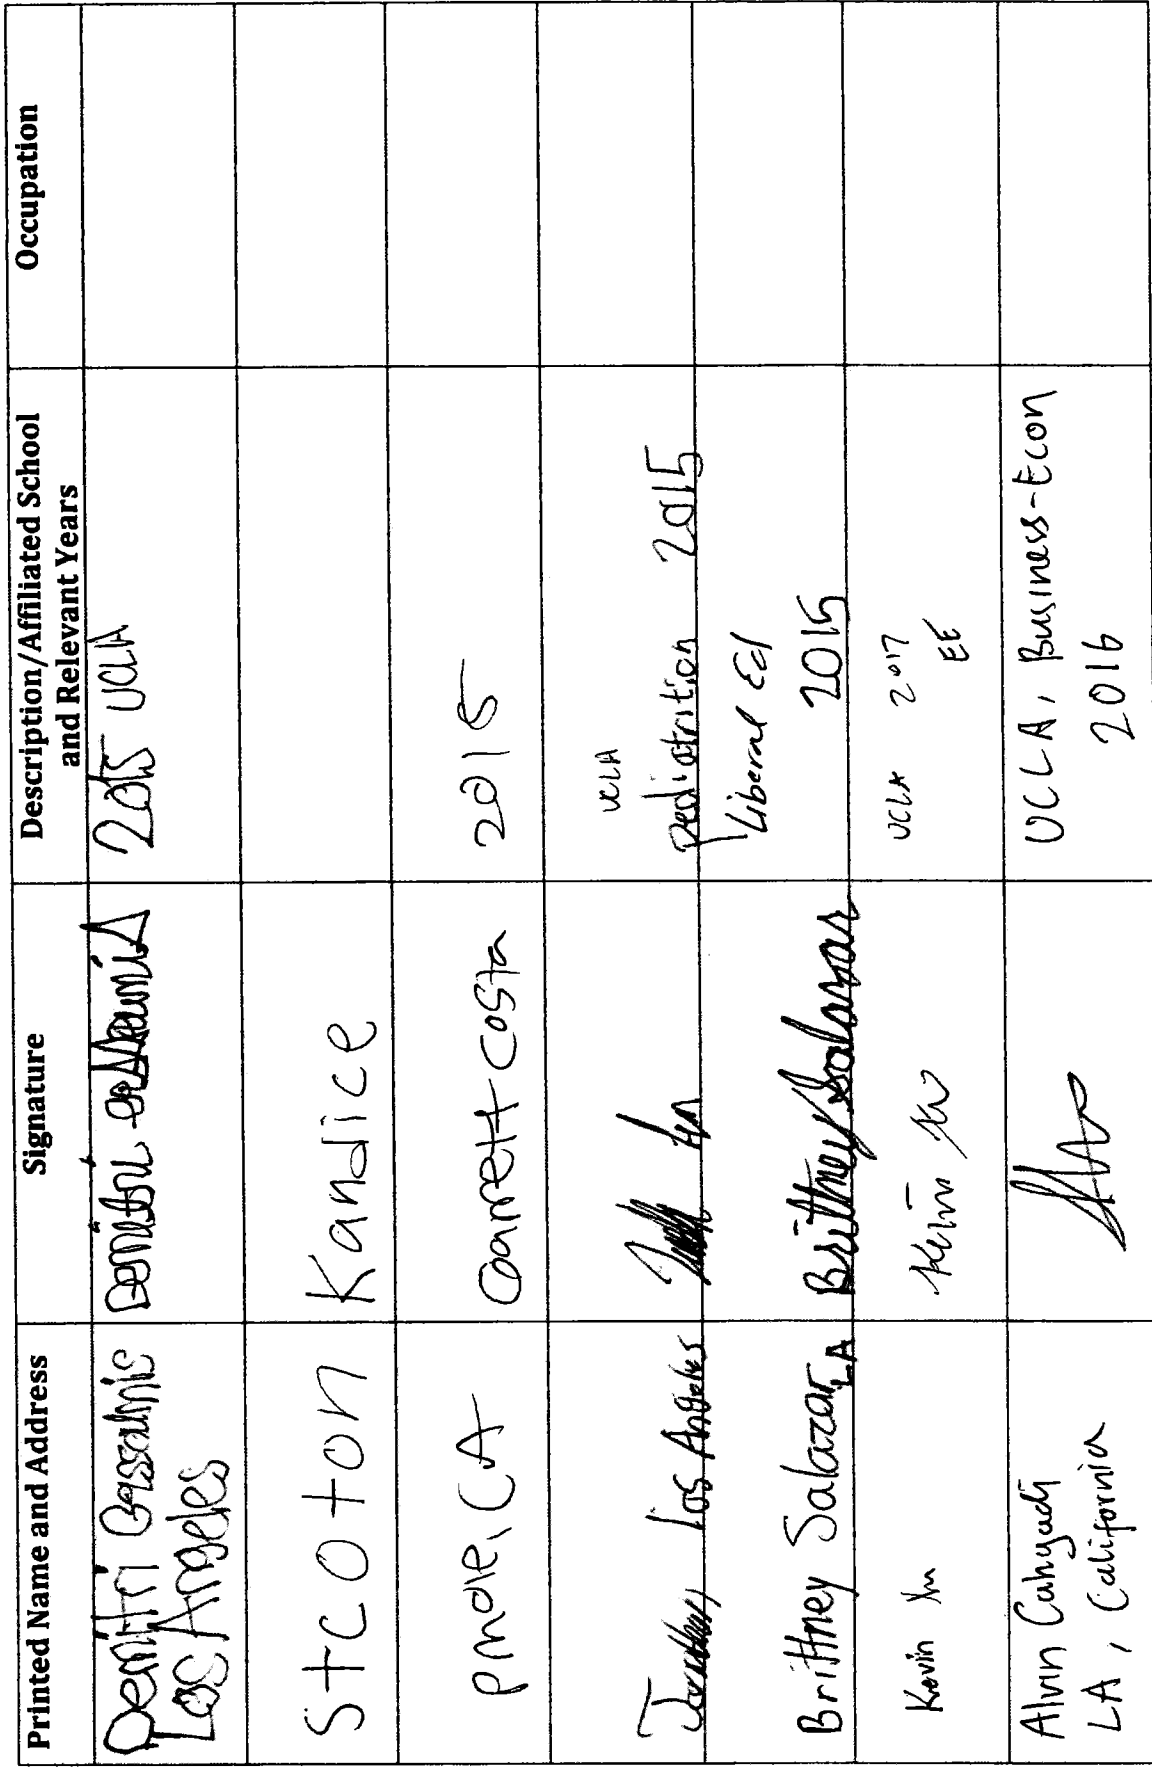 Printed Name and Address
Signature
Description/Affiliated School
and Relevant Years
Occupation
Demitri
Los Angeles
2015 UCLA
Stcoton
Kandice
pmdle, CA
Costa
2015
Los Angeles
UCLA
Pediatrition 2015
Brittney Salazar, LA
Brittney Salazar
Liberal Ed
2015
Kevin Xu
Kevin Xu
UCLA 2017
EE
Alvin Cahyadi
LA, California
UCLA, Business-Econ
2016